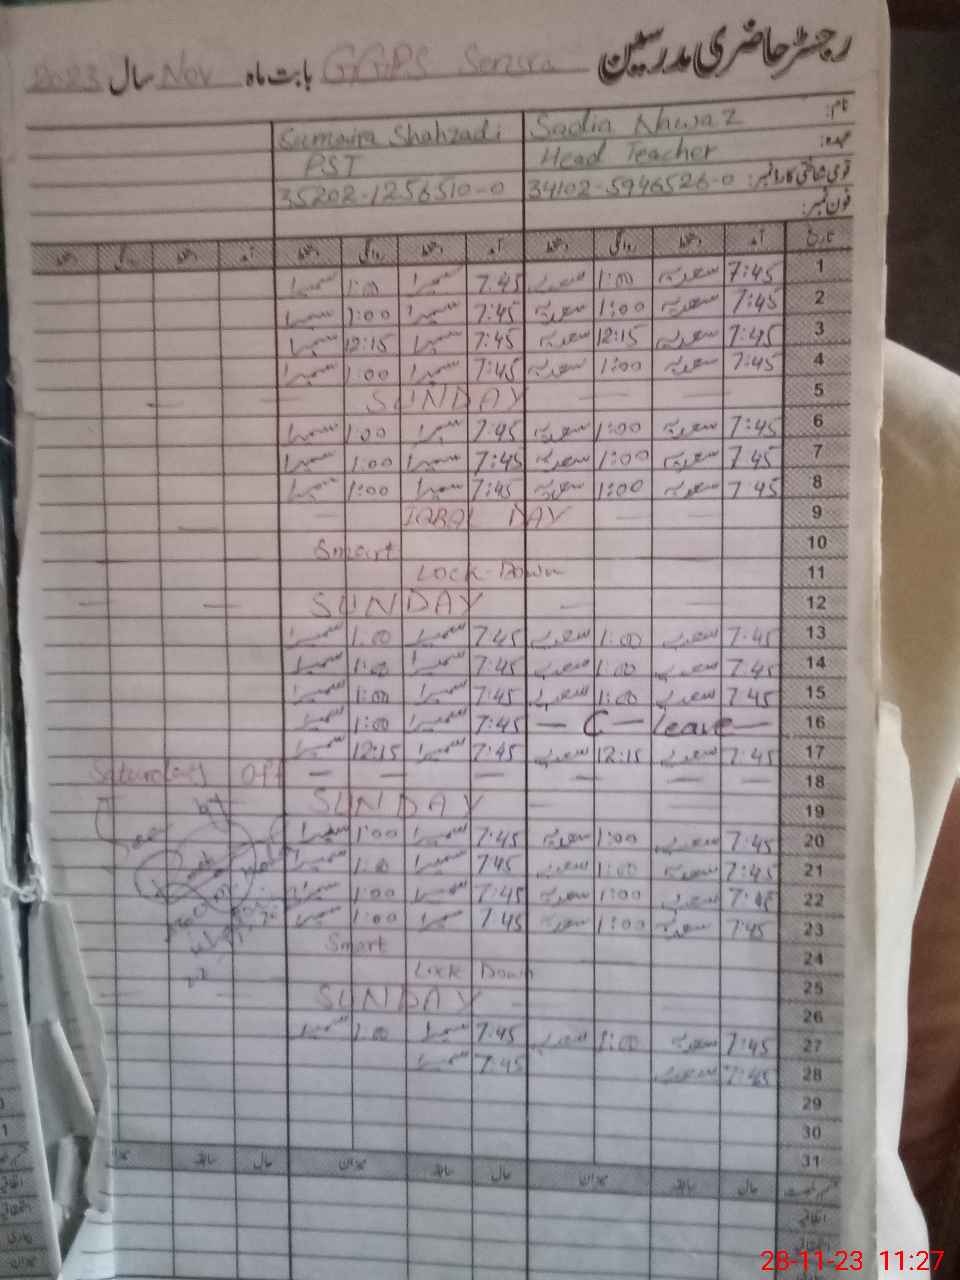 رجسٹر حاضری مدرسین GGPS بابت ماہ Nov سال 2023
نام: Sadia Nawaz Sumaira Shahzadi
عہدہ: Head Teacher PST
قومی شناختی کارڈ نمبر: 34102-5946526-0 35202-1256510-0
فون نمبر:
تاریخ آمد دستخط روانگی دستخط آمد دستخط روانگی دستخط آمد دستخط روانگی دستخط
1 7:45 سعدیہ 1:00 سعدیہ 7:45 سمیرا 1:00 سمیرا
2 7:45 سعدیہ 1:00 سعدیہ 7:45 سمیرا 1:00 سمیرا
3 7:45 سعدیہ 12:15 سعدیہ 7:45 سمیرا 12:15 سمیرا
4 7:45 سعدیہ 1:00 سعدیہ 7:45 سمیرا 1:00 سمیرا
5 SUNDAY
6 7:45 سعدیہ 1:00 سعدیہ 7:45 سمیرا 1:00 سمیرا
7 7:45 سعدیہ 1:00 سعدیہ 7:45 سمیرا 1:00 سمیرا
8 7:45 سعدیہ 1:00 سعدیہ 7:45 سمیرا 1:00 سمیرا
9 IQBAL DAY
10 Smart
11 Lock-Down
12 SUNDAY
13 7:45 سعدیہ 1:00 سعدیہ 7:45 سمیرا 1:00 سمیرا
14 7:45 سعدیہ 1:00 سعدیہ 7:45 سمیرا 1:00 سمیرا
15 7:45 سعدیہ 1:00 سعدیہ 7:45 سمیرا 1:00 سمیرا
16 — C — leave — 7:45 سمیرا 1:00 سمیرا
17 7:45 سعدیہ 12:15 سعدیہ 7:45 سمیرا 12:15 سمیرا
18 Saturday Off
19 SUNDAY
20 7:45 سعدیہ 1:00 سعدیہ 7:45 سمیرا 1:00 سمیرا
21 7:45 سعدیہ 1:00 سعدیہ 7:45 سمیرا 1:00 سمیرا
22 7:45 سعدیہ 1:00 سعدیہ 7:45 سمیرا 1:00 سمیرا
23 7:45 سعدیہ 1:00 سعدیہ 7:45 سمیرا 1:00 سمیرا
24 Smart
25 Lock Down
26 SUNDAY
27 7:45 سعدیہ 1:00 سعدیہ 7:45 سمیرا 1:00 سمیرا
28 7:45 سعدیہ 7:45 سمیرا
29
30
31
حال سابقہ میزان حال سابقہ میزان حال سابقہ
اتفاقیہ
28-11-23 11:27